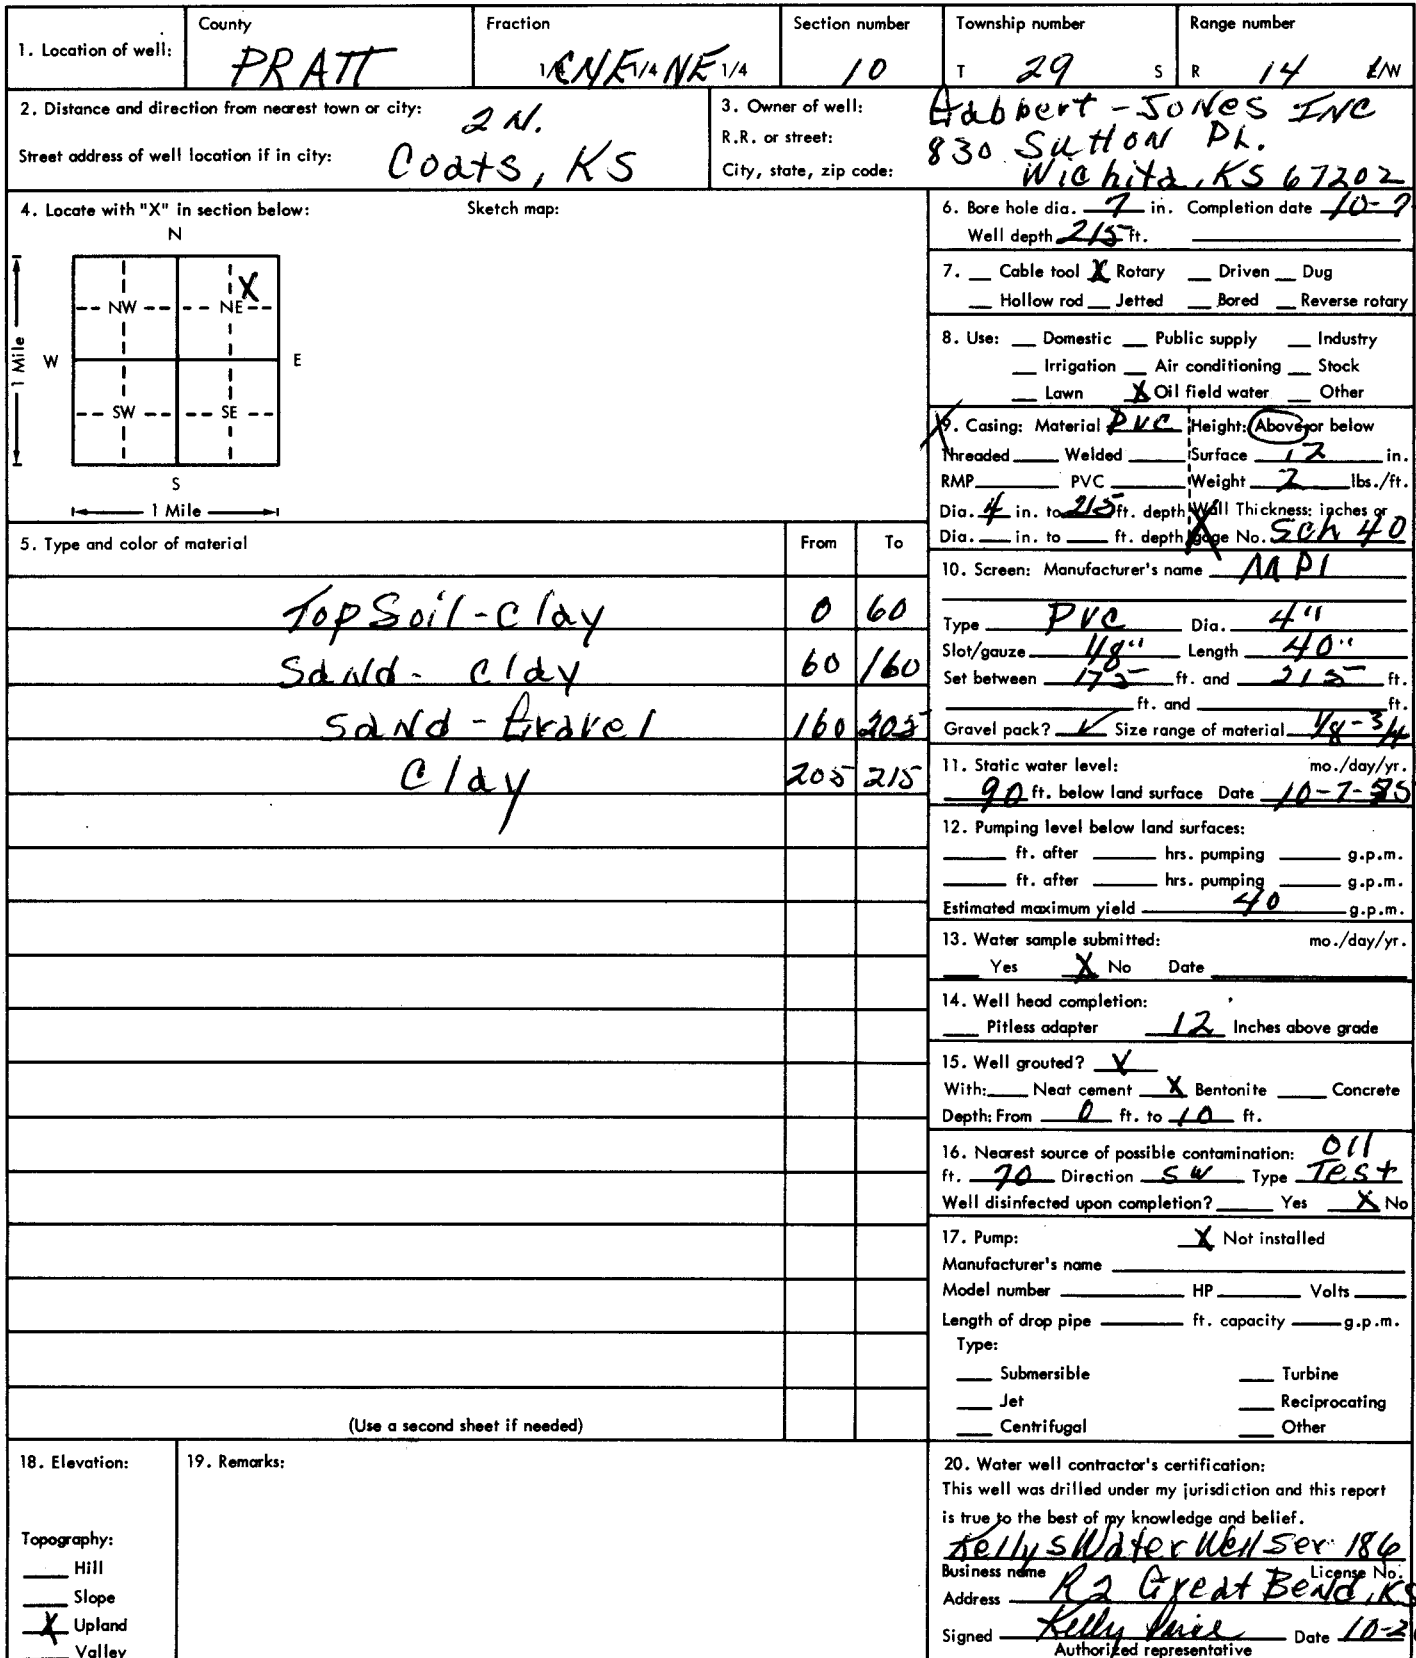 1. Location of well: County PRATT Fraction 1/4 CNE 1/4 NE 1/4 Section number 10 Township number T 29 S Range number R 14 E/W
2. Distance and direction from nearest town or city: 2 N.
Street address of well location if in city: Coats, KS
3. Owner of well: -Jones INC
R.R. or street: 830 Sutton PL.
City, state, zip code: Wichita, KS 67202
4. Locate with "X" in section below: Sketch map:
N
X
NW NE
W E
1 Mile
SW SE
S
1 Mile
5. Type and color of material From To
Top Soil - Clay 0 60
Sand - Clay 60 160
Sand - Gravel 160 205
Clay 205 215
(Use a second sheet if needed)
6. Bore hole dia. 7 in. Completion date 10-7
Well depth 215 ft.
7. Cable tool X Rotary Driven Dug
Hollow rod Jetted Bored Reverse rotary
8. Use: Domestic Public supply Industry
Irrigation Air conditioning Stock
Lawn X Oil field water Other
9. Casing: Material PVC Height: Above or below
Threaded Welded Surface 12 in.
RMP PVC Weight 2 lbs./ft.
Dia. 4 in. to 215 ft. depth Wall Thickness: inches or
Dia. in. to ft. depth gage No. Sch 40
10. Screen: Manufacturer's name MPI
Type PVC Dia. 4"
Slot/gauze 1/8" Length 40"
Set between 175 ft. and 215 ft.
ft. and ft.
Gravel pack? ✓ Size range of material 1/8-3/4
11. Static water level: mo./day/yr.
90 ft. below land surface Date 10-7-75
12. Pumping level below land surfaces:
ft. after hrs. pumping g.p.m.
ft. after hrs. pumping g.p.m.
Estimated maximum yield 40 g.p.m.
13. Water sample submitted: mo./day/yr.
Yes X No Date
14. Well head completion:
Pitless adapter 12 Inches above grade
15. Well grouted? X
With: Neat cement X Bentonite Concrete
Depth: From 0 ft. to 10 ft.
16. Nearest source of possible contamination: Oil
ft. 70 Direction SW Type Test
Well disinfected upon completion? Yes X No
17. Pump: X Not installed
Manufacturer's name
Model number HP Volts
Length of drop pipe ft. capacity g.p.m.
Type:
Submersible Turbine
Jet Reciprocating
Centrifugal Other
18. Elevation:
Topography:
Hill
Slope
X Upland
Valley
19. Remarks:
20. Water well contractor's certification:
This well was drilled under my jurisdiction and this report
is true to the best of my knowledge and belief.
Kellys Water Well Ser 186
Business name License No.
Address R2 Great Bend, KS
Signed Kelly Date 10-2
Authorized representative